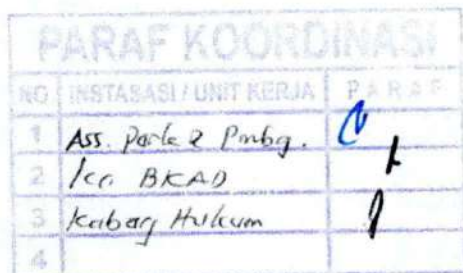 PARAF KOORDINASI
NO INSTASASI / UNIT KERJA PARAF
1 Ass. Perk & Pmbg.
2 BKAD
3 Kabag Hukum
4